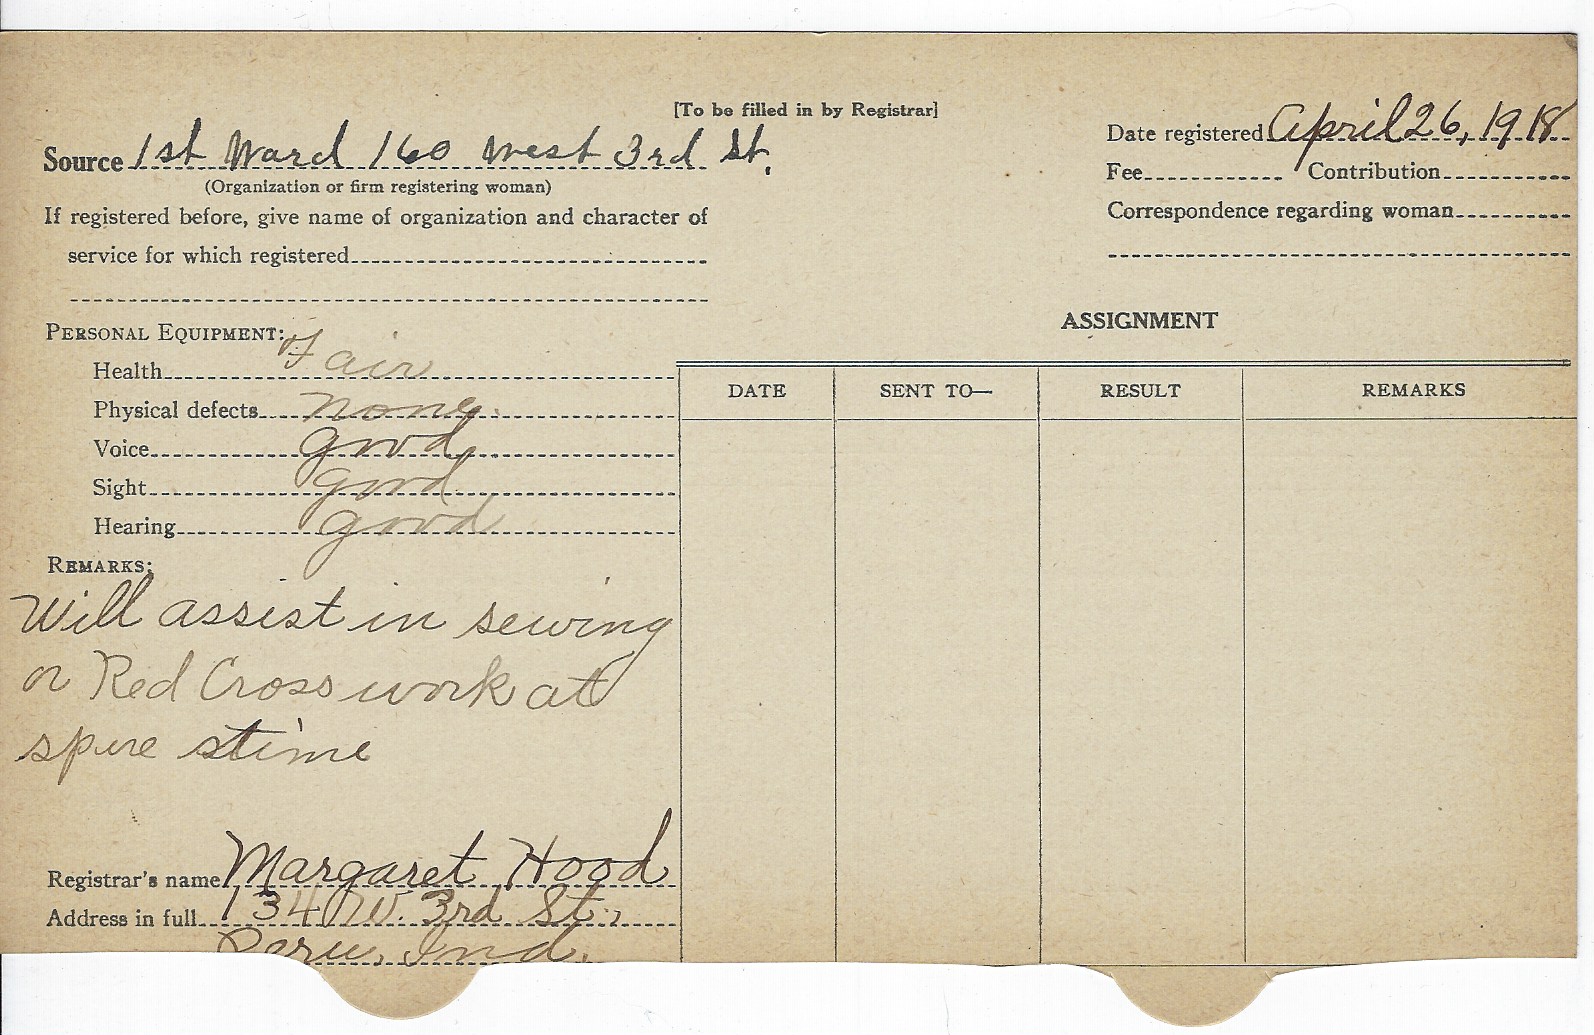 [To be filled in by Registrar]
Source 1st Ward 160 West 3rd St.
(Organization or firm registering woman)
If registered before, give name of organization and character of
service for which registered
Date registered April 26, 1918
Fee Contribution
Correspondence regarding woman
PERSONAL EQUIPMENT:
Health Fair
Physical defects none
Voice good
Sight good
Hearing good
REMARKS:
Will assist in sewing
or Red Cross work at
spure stime
Registrar's name Margaret Hood
Address in full 134 W. 3rd St.,
Peru, Ind.
ASSIGNMENT
DATE SENT TO— RESULT REMARKS